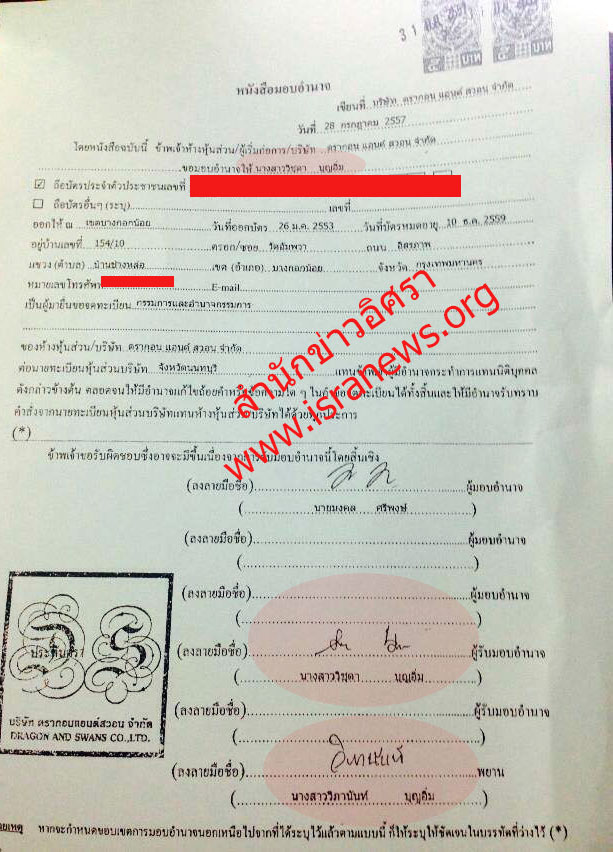 31 ก.ค. 2557
๕ บาท ๕ บาท
หนังสือมอบอำนาจ
เขียนที่ บริษัท ดรากอน แอนด์ สวอน จำกัด
วันที่ 28 กรกฎาคม 2557
โดยหนังสือฉบับนี้ ข้าพเจ้าห้างหุ้นส่วน/ผู้เริ่มก่อการ/บริษัท ดรากอน แอนด์ สวอน จำกัด
ขอมอบอำนาจให้ นางสาววิชุดา บุญอิ่ม
☑ ถือบัตรประจำตัวประชาชนเลขที่
☐ ถือบัตรอื่นๆ (ระบุ) เลขที่
ออกให้ ณ เขตบางกอกน้อย วันที่ออกบัตร 26 ม.ค. 2553 วันที่บัตรหมดอายุ 10 ธ.ค. 2559
อยู่บ้านเลขที่ 154/10 ตรอก/ซอย วัดอัมพวา ถนน อิสรภาพ
แขวง (ตำบล) บ้านช่างหล่อ เขต (อำเภอ) บางกอกน้อย จังหวัด กรุงเทพมหานคร
หมายเลขโทรศัพท์ E-mail
เป็นผู้มายื่นขอจดทะเบียน กรรมการและอำนาจกรรมการ
ของห้างหุ้นส่วน/บริษัท ดรากอน แอนด์ สวอน จำกัด
ต่อนายทะเบียนหุ้นส่วนบริษัท จังหวัดนนทบุรี แทนข้าพเจ้า มีอำนาจกระทำการแทนนิติบุคคล
ดังกล่าวข้างต้น ตลอดจนให้มีอำนาจแก้ไขถ้อยคำหรือข้อความใด ๆ ในคำขอจดทะเบียนได้ทั้งสิ้นและให้มีอำนาจรับทราบ
คำสั่งจากนายทะเบียนหุ้นส่วนบริษัทแทนห้างหุ้นส่วนบริษัทได้ด้วยทุกประการ
(*)
ข้าพเจ้าขอรับผิดชอบซึ่งอาจจะมีขึ้นเนื่องจากการรับมอบอำนาจนี้โดยสิ้นเชิง
(ลงลายมือชื่อ) ผู้มอบอำนาจ
( นายมงคล ศรีพงษ์ )
(ลงลายมือชื่อ) ผู้มอบอำนาจ
( )
(ลงลายมือชื่อ) ผู้มอบอำนาจ
( )
(ลงลายมือชื่อ) ผู้รับมอบอำนาจ
( นางสาววิชุดา บุญอิ่ม )
(ลงลายมือชื่อ) ผู้รับมอบอำนาจ
( )
(ลงลายมือชื่อ) วิภานันท์ พยาน
( นางสาววิภานันท์ บุญอิ่ม )
ประทับตรา
บริษัท ดรากอนแอนด์สวอน จำกัด
DRAGON AND SWANS CO.,LTD.
หากจะกำหนดขอบเขตการมอบอำนาจนอกเหนือไปจากที่ได้ระบุไว้แล้วตามแบบนี้ ก็ให้ระบุให้ชัดเจนในบรรทัดที่ว่างไว้ (*)
สำนักข่าวอิศรา
www.isranews.org